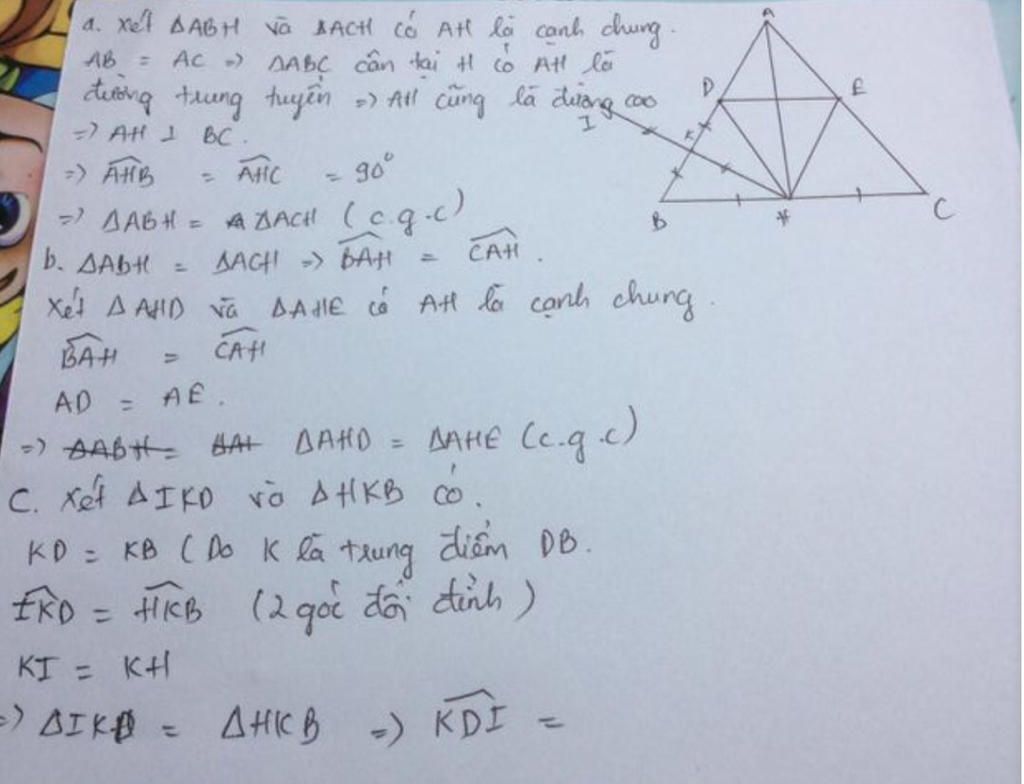 a. Xét ΔABH và ΔACH có AH là cạnh chung.
AB = AC => ΔABC cân tại H có AH là
đường trung tuyến => AH cũng là đường cao
=> AH ⊥ BC.
=> AHB = AHC = 90°
=> ΔABH = ΔACH (c.g.c)
b. ΔABH = ΔACH => BAH = CAH.
Xét ΔAHD và ΔAHE có AH là cạnh chung.
BAH = CAH
AD = AE.
=> ΔABH = ΔAHD = ΔAHE (c.g.c)
C. Xét ΔIKD và ΔHKB có.
KD = KB (Do K là trung điểm DB.
IKD = HKB (2 góc đối đỉnh)
KI = KH
=> ΔIKD = ΔHKB => KDI =
A
D
E
I
K
B
H
C